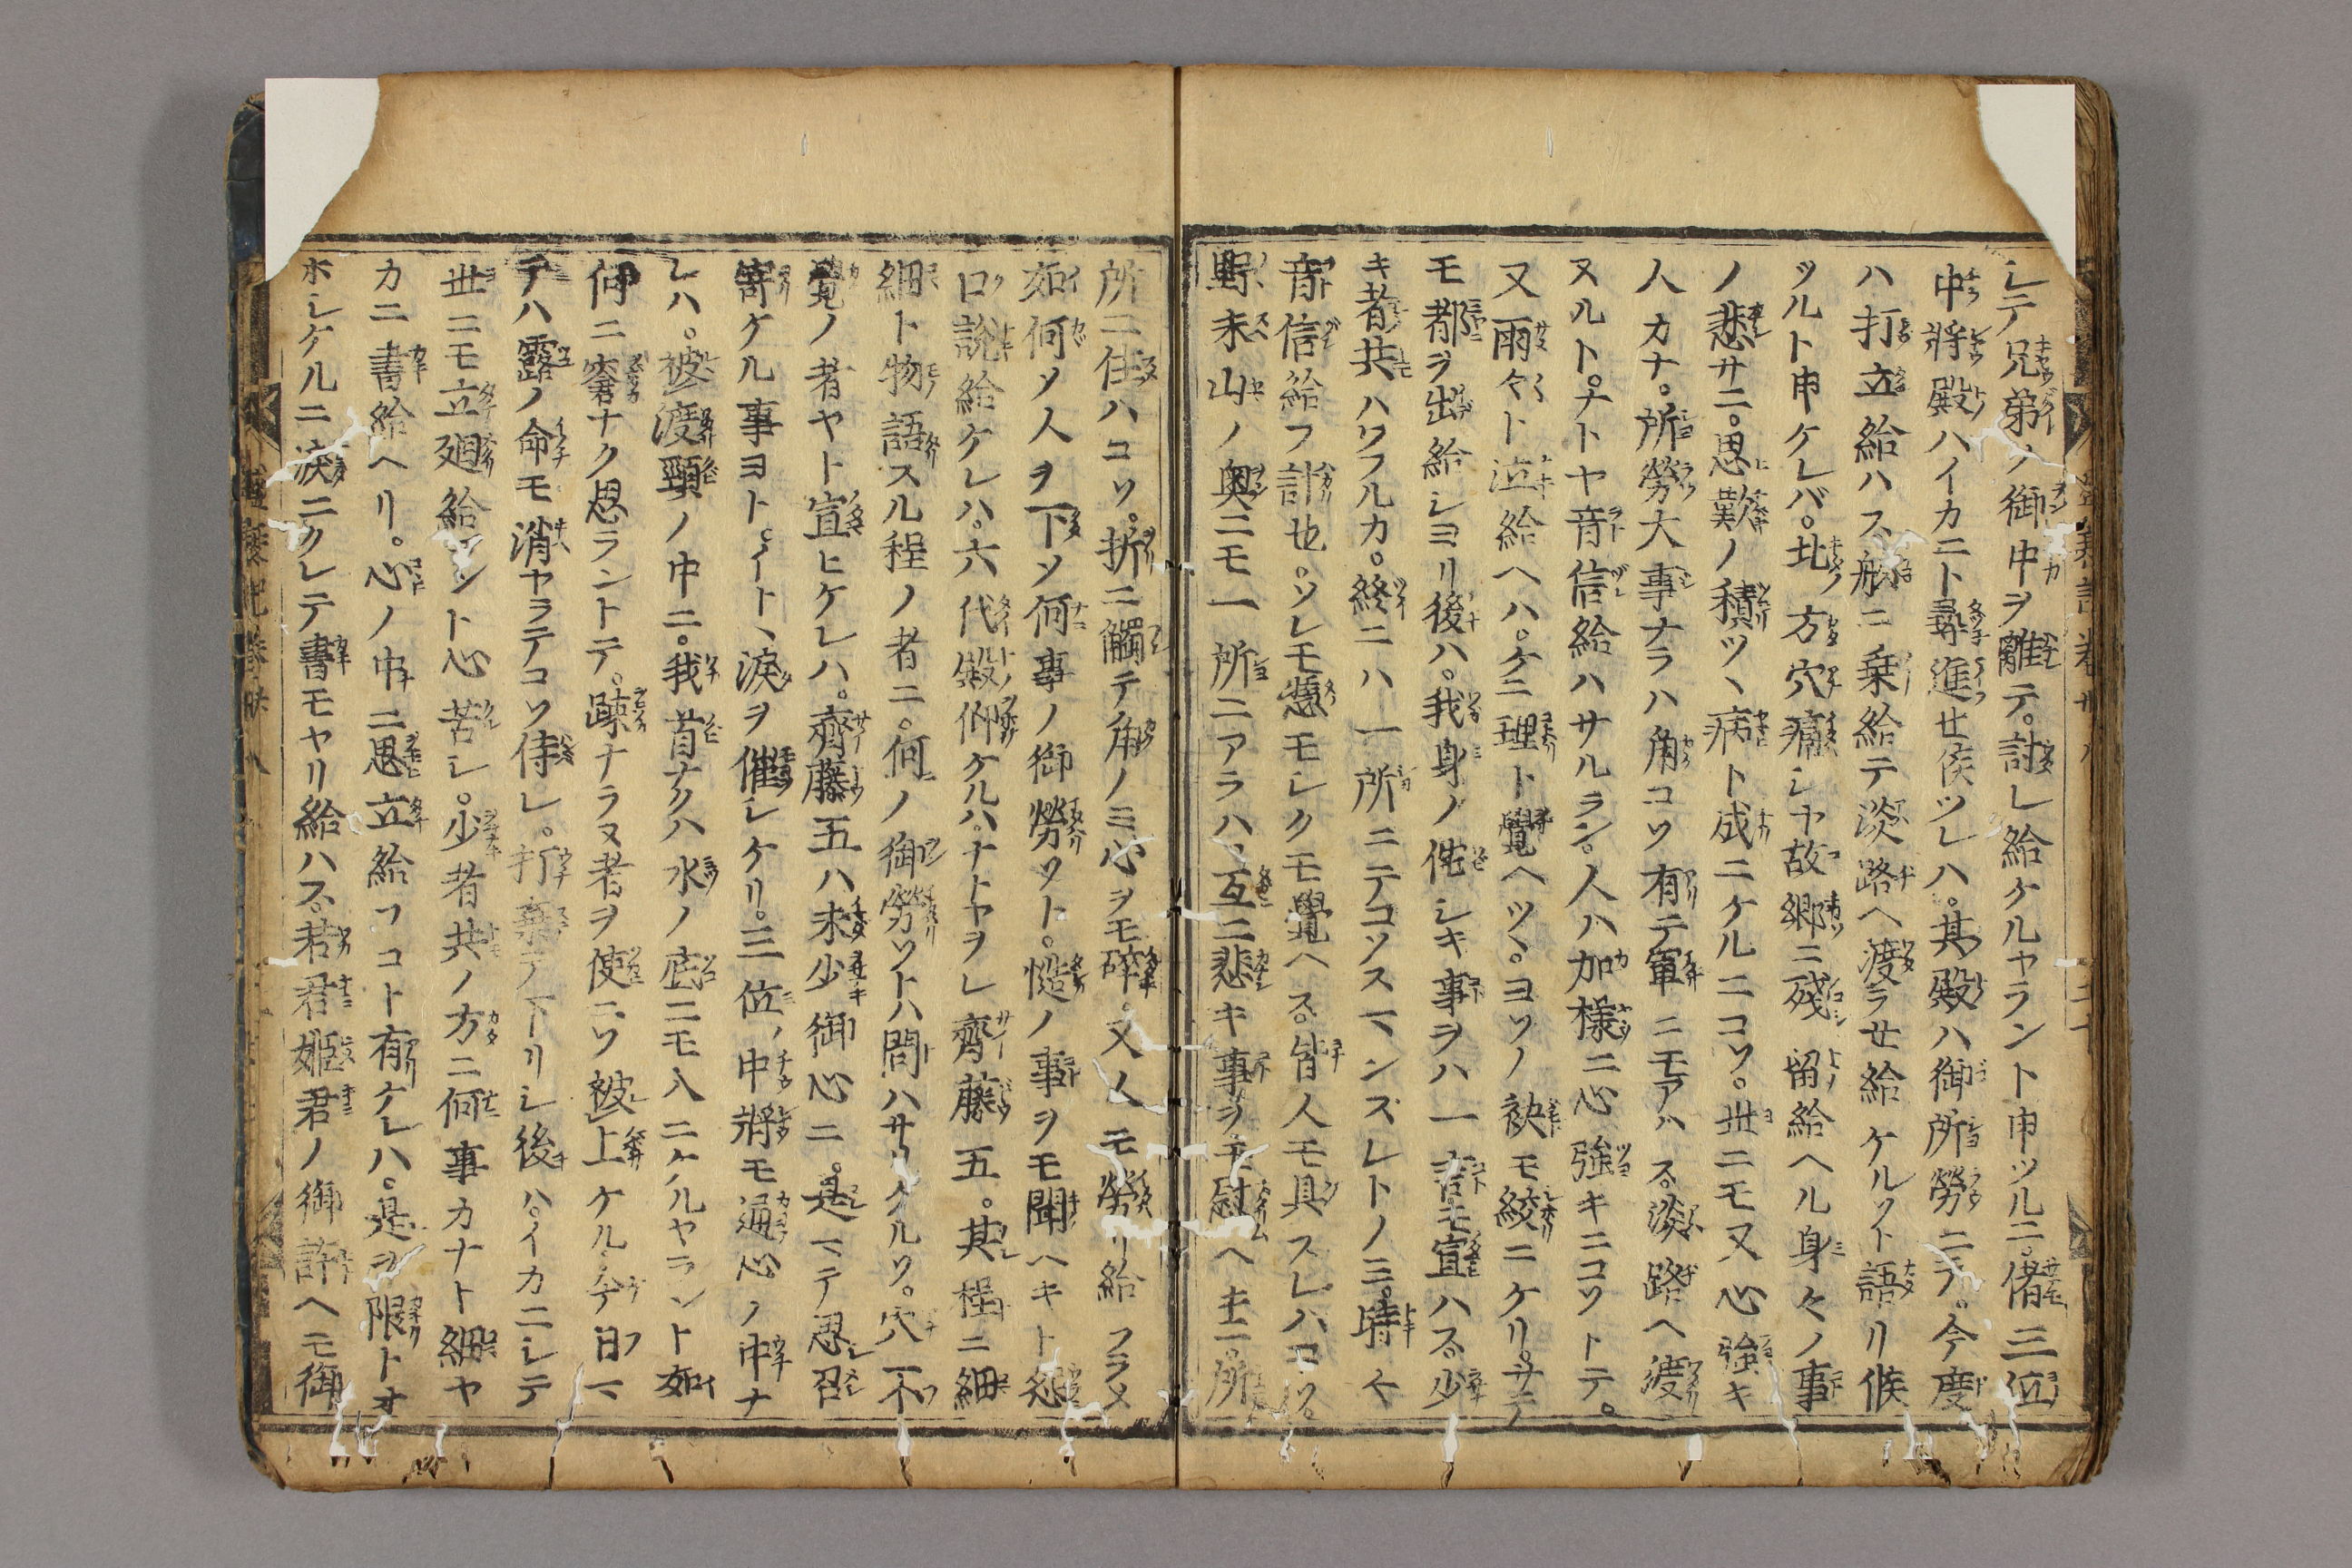 シテ兄弟ノ御中ヲ離テ。討レ給ケルヤラント申ツルニ。偖三位
中將殿ハイカニト尋進セ候ツレハ。其殿ハ御所勞ニテ。今度
ハ打立給ハス。船ニ乗給テ淡路ヘ渡ラセ給ケルソト語リ候
ツルト申ケレバ。北ノ方穴痛シヤ故郷ニ殘留給ヘル身々ノ事
ノ悲サニ。思歎ノ積ツヽ病ト成ニケルニコソ。世ニモ又心強キ
人カナ。所勞大事ナラハ角コソ有テ軍ニモアハス。淡路ヘ渡
ヌルト。ナトヤ音信給ハサルラン。人ハ加樣ニ心強キニコソトテ。
又雨々ト泣給ヘハ。ケニ理ト覺ヘツヽ。ヨソノ袂モ絞ニケリ。サテ
モ都ヲ出給シヨリ後ハ。我身ノ侘シキ事ヲハ一言モ宣ハス。少
キ者共ハワフルカ。終ニハ一所ニテコソスマンズレトノミ。時々
音信給フ計也。ソレモ憑モシクモ覺ヘス。皆人モ具スレハコソ。
野末山ノ奥ニモ一所ニアラハ。互ニ悲キ事ヲモ慰ヘキニ。所
所ニ住ハコソ。折ニ觸テ角ノミ心ヲモ碎。又人モ勞リ給フラメ
如何ソ人ヲ下ソ何事ノ御勞ソト。慥ノ事ヲモ聞ヘキト怨
口說給ケレハ。六代殿仰ケルハ。ナトヤヲレ齊藤五。其程ニ細
細ト物語スル程ノ者ニ。何ノ御勞ソトハ問ハサリケルソ。穴不
覺ノ者ヤト宣ヒケレハ。齊藤五ハ未少御心ニ。是マテ思召
寄ケル事ヨト。イトヽ淚ヲ催シケリ。三位ノ中將モ通心ノ中ナ
レハ。被渡頸ノ中ニ。我首ナクハ水ノ底ニモ入ニケルヤラント如
何ニ窘ナク思ラントテ。疎ナラヌ者ヲ使ニソ被上ケル。今日マ
テハ露ノ命モ消ヤラテコソ侍レ。打棄テ下リシ後ハ。イカニシテ
世ニモ立廻給ラント心苦シ。少者共ノ方ニ何事カナト細ヤ
カニ書給ヘリ。心ノ中ニ思立給フコト有ケレハ。是ヲ限トオ
ホシケルニ淚ニクレテ書モヤリ給ハス。若君姬君ノ御許ヘモ御